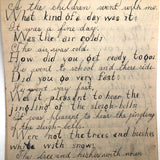 If the children went with me.
What kind of a day was it?
It was a fine day.
Was the air cold?
The air was cold.
How did you get ready to go?
We went to school and there
did you go very fast?
We went very fast.
Was it pleasant to hear the
jingling of the sleigh-bells?
It was pleasant to hear the jingling
of the sleigh-bells.
Were not the trees and bushes
white with snow?
The trees and bushes